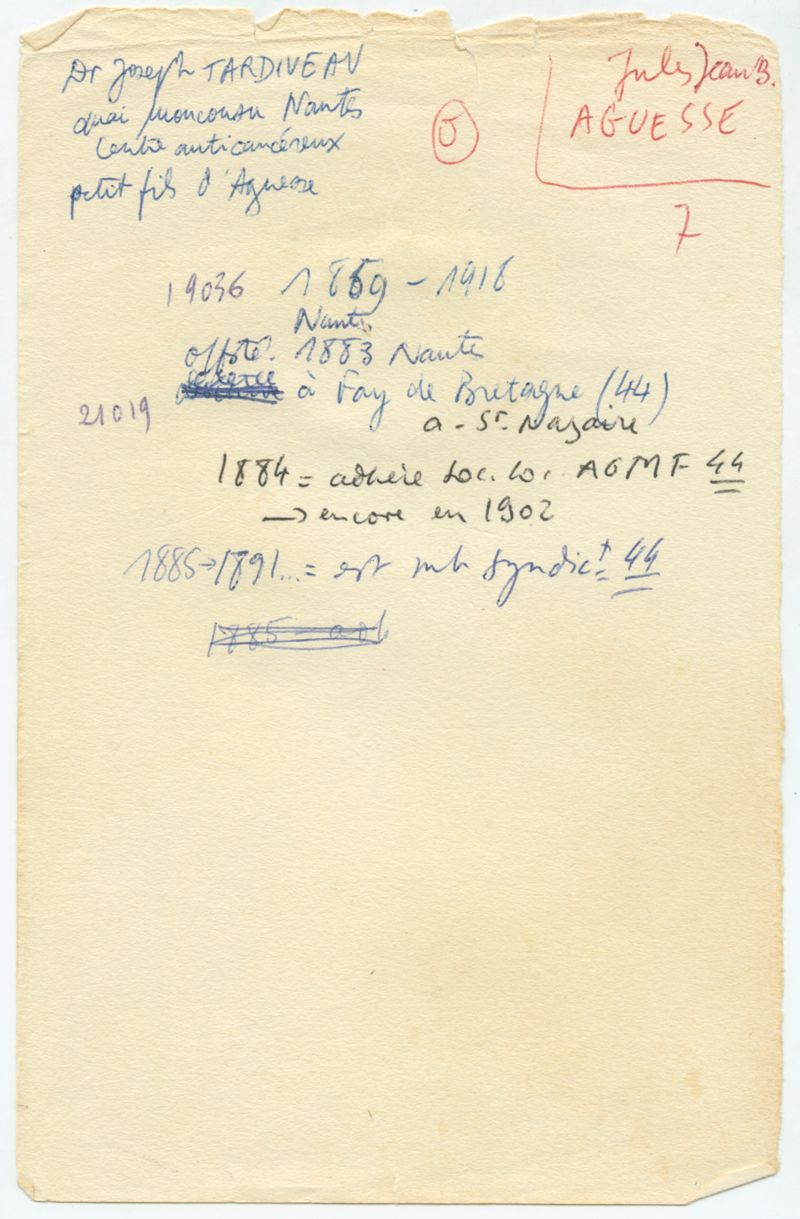 Dr Joseph TARDIVEAU
quai moncousu Nantes
Centre anticancéreux
petit fils d'Aguesse
Jules Jean B.
AGUESSE
7
19036 1859 - 1918
Nantes
offsté. 1883 Nantes
à Fay de Bretagne (44)
21019
a - St. Nazaire
1884 = adhère Soc. loc. AGMF 44
→ encore en 1902
1885→1891... = est mb Syndict = 44
1885 = adh